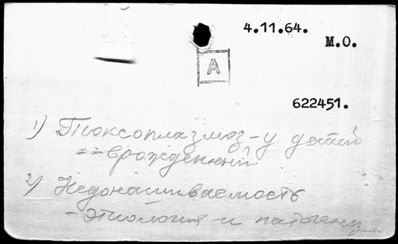 4.11.64.
М.О.
А
622451.
1) Токсоплазмоз - у детей
== врожденный
2) Недонашиваемость
- этиология и патоген